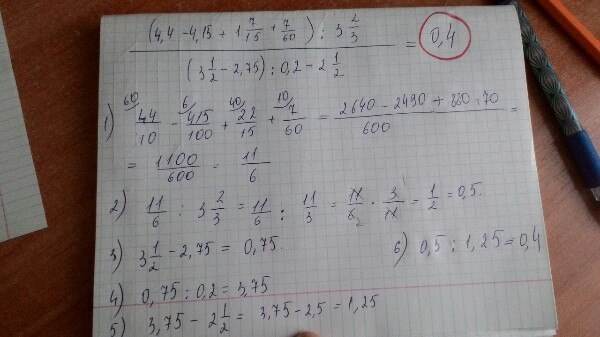 (4,4 - 4,15 + 1 7/15 + 7/60) : 3 2/3
(3 1/2 - 2,75) : 0,2 - 2 1/2
= 0,4
1) 60/ 44/10 - 6/ 415/100 + 40/ 22/15 + 10/ 7/60 = 2640 - 2490 + 880 + 70 / 600 =
= 1100/600 = 11/6
2) 11/6 : 3 2/3 = 11/6 : 11/3 = 11/6 2 · 3/11 = 1/2 = 0,5.
3) 3 1/2 - 2,75 = 0,75.
6) 0,5 : 1,25 = 0,4
4) 0,75 : 0,2 = 3,75
5) 3,75 - 2 1/2 = 3,75 - 2,5 = 1,25